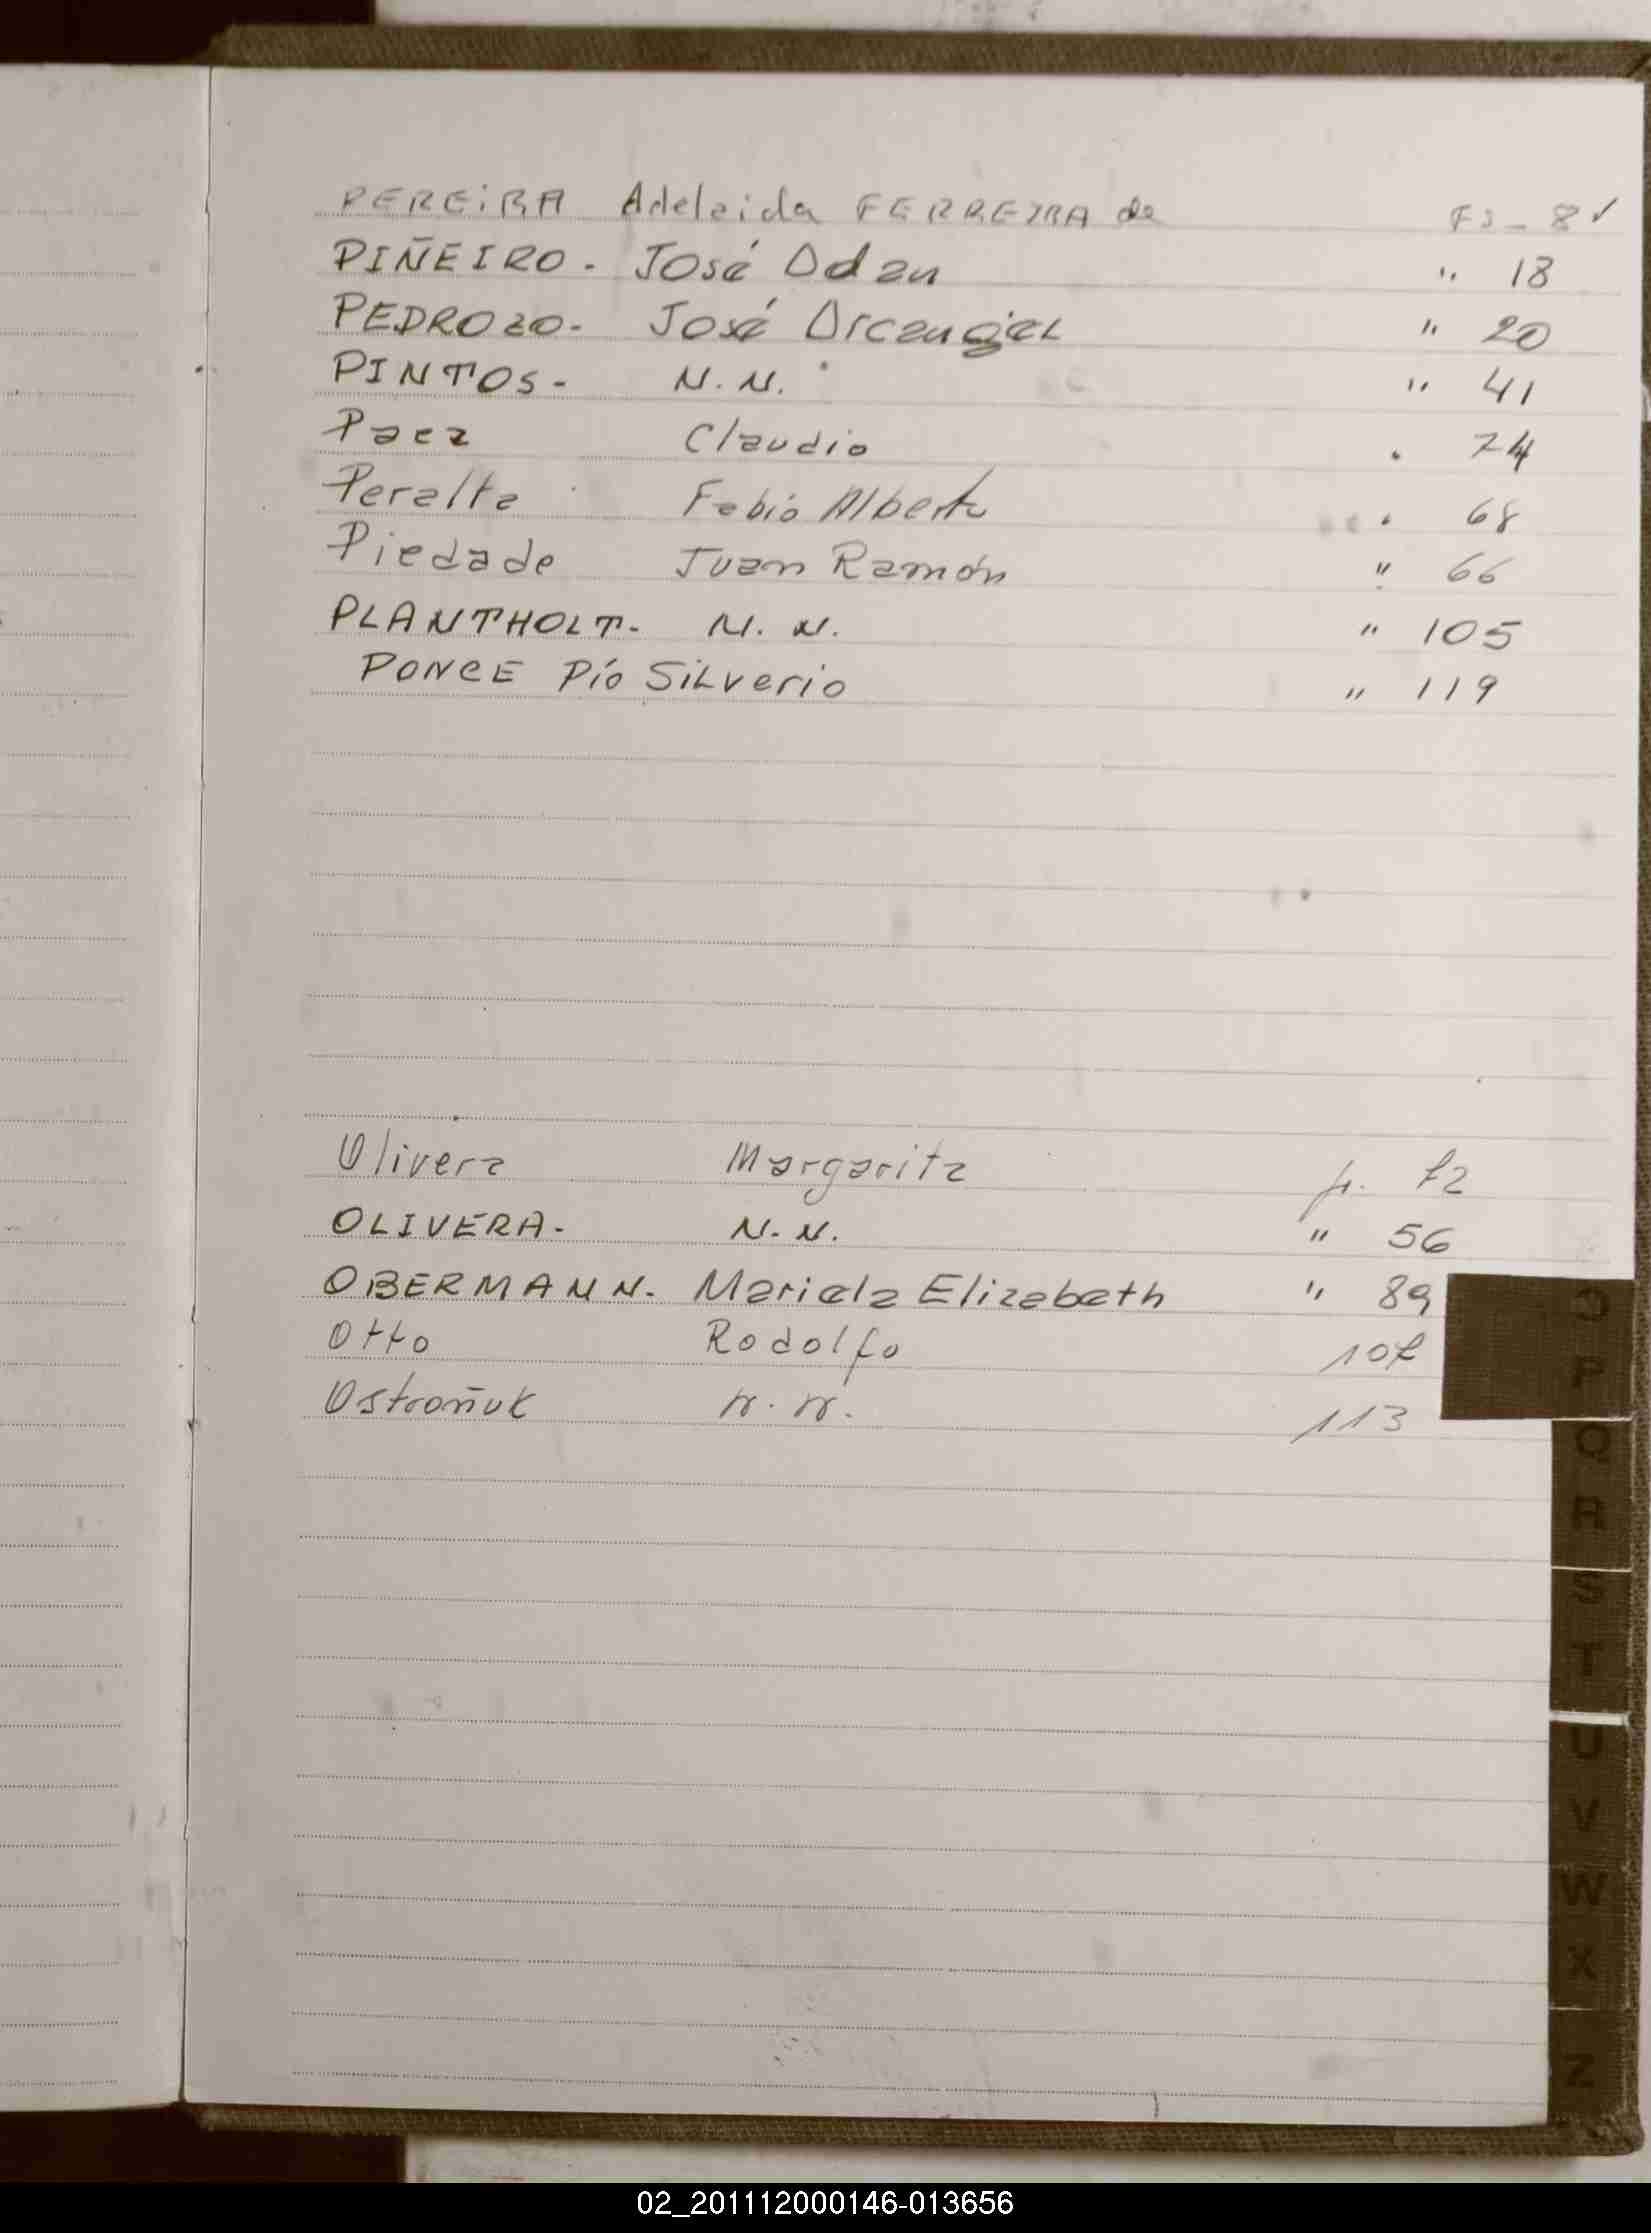 PEREiRA Adelaida FERREIRA de Fs - 8 ✓
PIÑEIRO - José Adan " 18
PEDROZO - José Arcangel " 20
PINTOS - N.N. " 41
Paez Claudio " 74
Peralta Fabio Alberto " 68
Piedade Juan Ramón " 66
PLANTHOLT - N.N. " 105
PONCE Pío Silverio " 119
Olivera Margarita
OLIVERA - N.N. " 56
OBERMANN - Mariela Elizabeth " 89
Otto Rodolfo
Ostrañuk N.N. 113
O
P
Q
R
S
T
U
V
W
X
Z
02_201112000146-013656